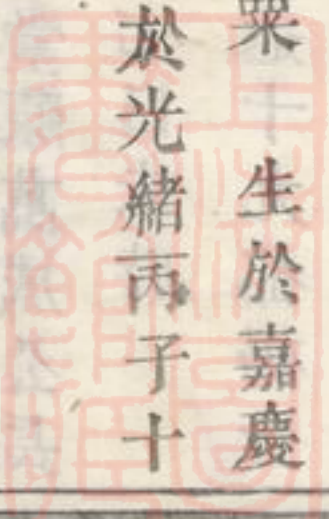 粟 生於嘉慶
於光緒丙子十